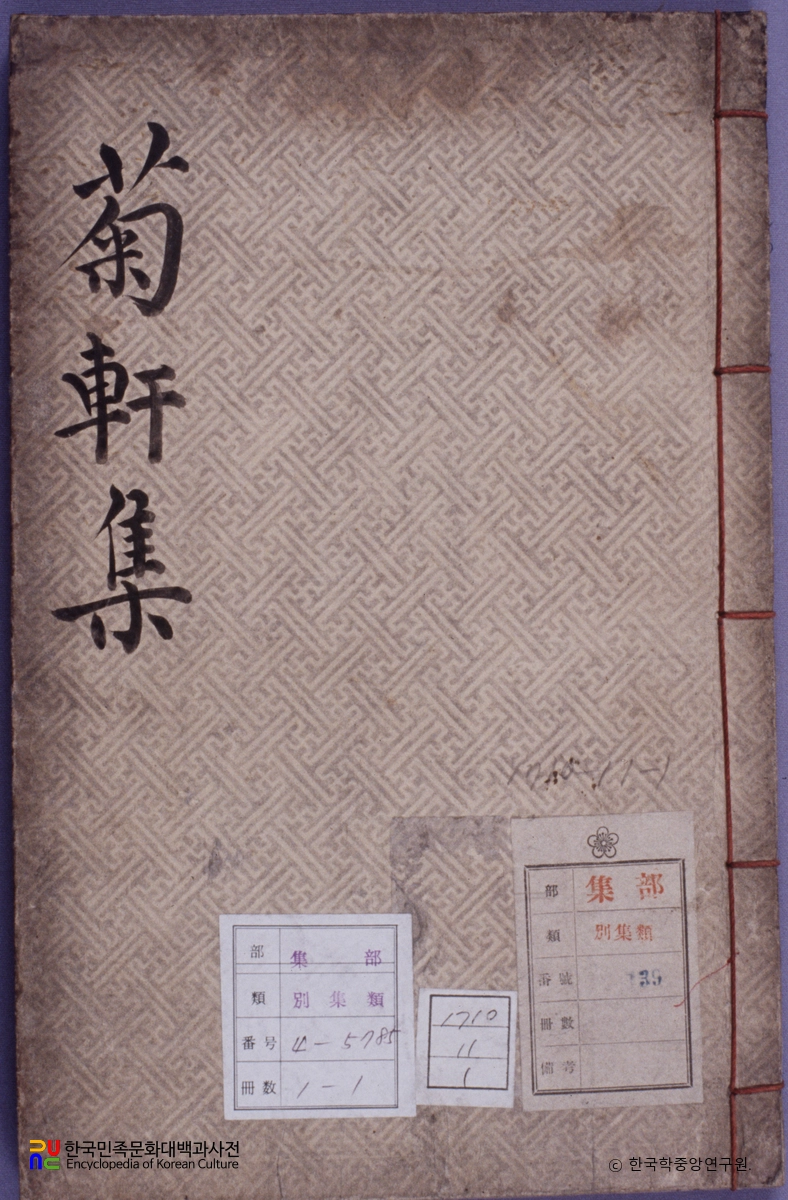 菊軒集
部 集 部
類 別集類
番號 135
冊數
備考
部 集 部
類 別集類
番号 4-5785
冊数 1-1
1710
11
1
한국민족문화대백과사전
Encyclopedia of Korean Culture
© 한국학중앙연구원.